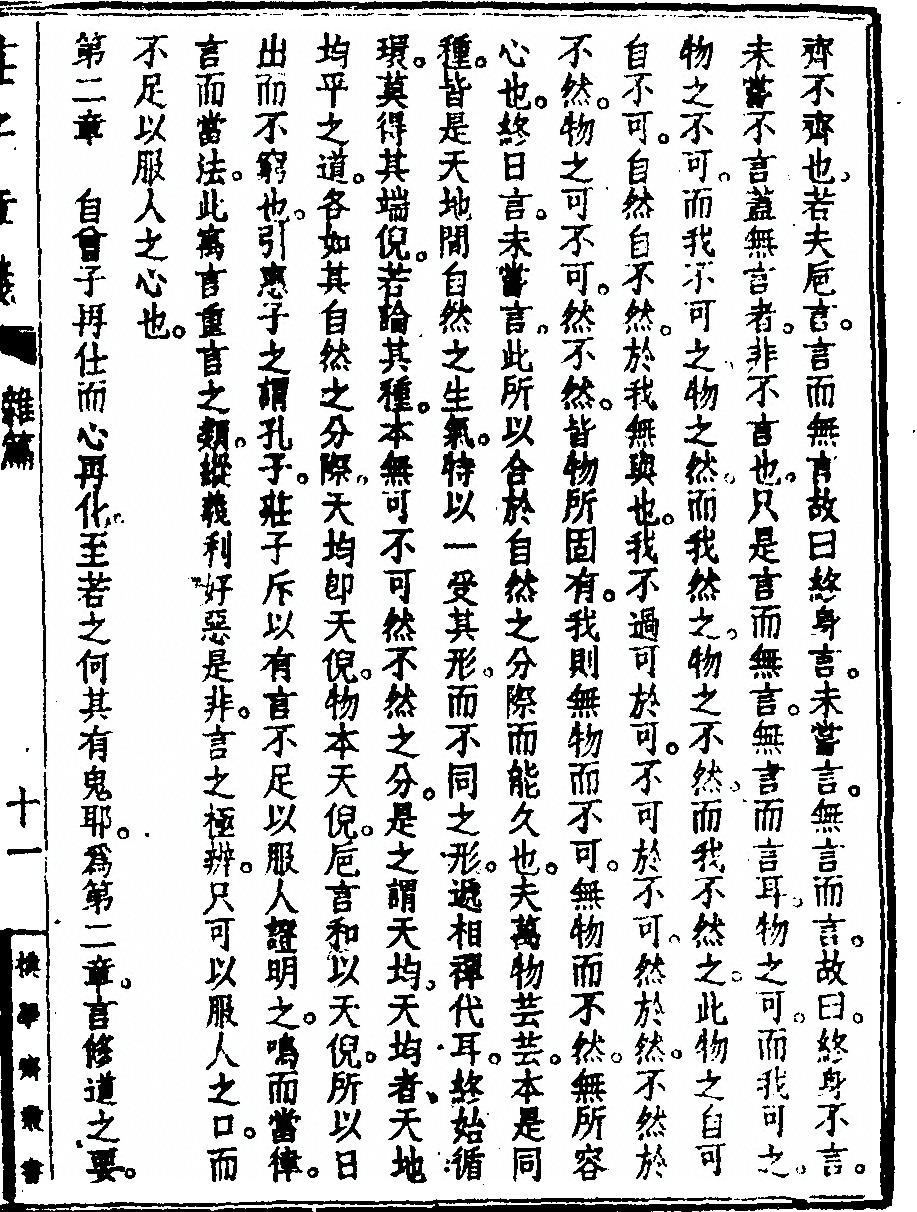 齊不齊也。若夫巵言。言而無言故曰終身言。未嘗言。無言而言。故曰。終身不言。
未嘗不言蓋無言者。非不言也。只是言而無言。無言而言耳。物之可。而我可之。
物之不可。而我不可之物之然。而我然之。物之不然。而我不然之。此物之自可
自不可。自然自不然。於我無與也。我不過可於可。不可於不可。然於然。不然於
不然。物之可不可。然不然。皆物所固有。我則無物而不可。無物而不然。無所容
心也。終日言。未嘗言。此所以合於自然之分際而能久也。夫萬物芸芸。本是同
種。皆是天地間自然之生氣。特以一受其形。而不同之形。遞相禪代耳。終始循
環。莫得其端倪。若論其種。本無可不可然不然之分。是之謂天均。天均者、天地
均平之道。各如其自然之分際。天均卽天倪。物本天倪。巵言和以天倪。所以日
出而不窮也。引惠子之謂孔子。莊子斥以有言不足以服人證明之。鳴而當律。
言而當法。此寓言重言之類。縱義利好惡是非。言之極辨。只可以服人之口。而
不足以服人之心也。
第二章　自曾子再仕而心再化。至若之何其有鬼耶。爲第二章。言修道之要。
雜篇
十一
樸學齋叢書